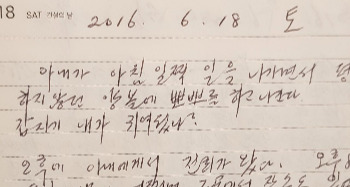 18 SAT
2016. 6. 18 토
아내가 아침 일찍 일을 나가면서 평
하지 않던 양볼에 뽀뽀를 하고 나간다
갑자기 내가 귀여웠나?
오후에 아내에게서 전화가 왔다. 오후